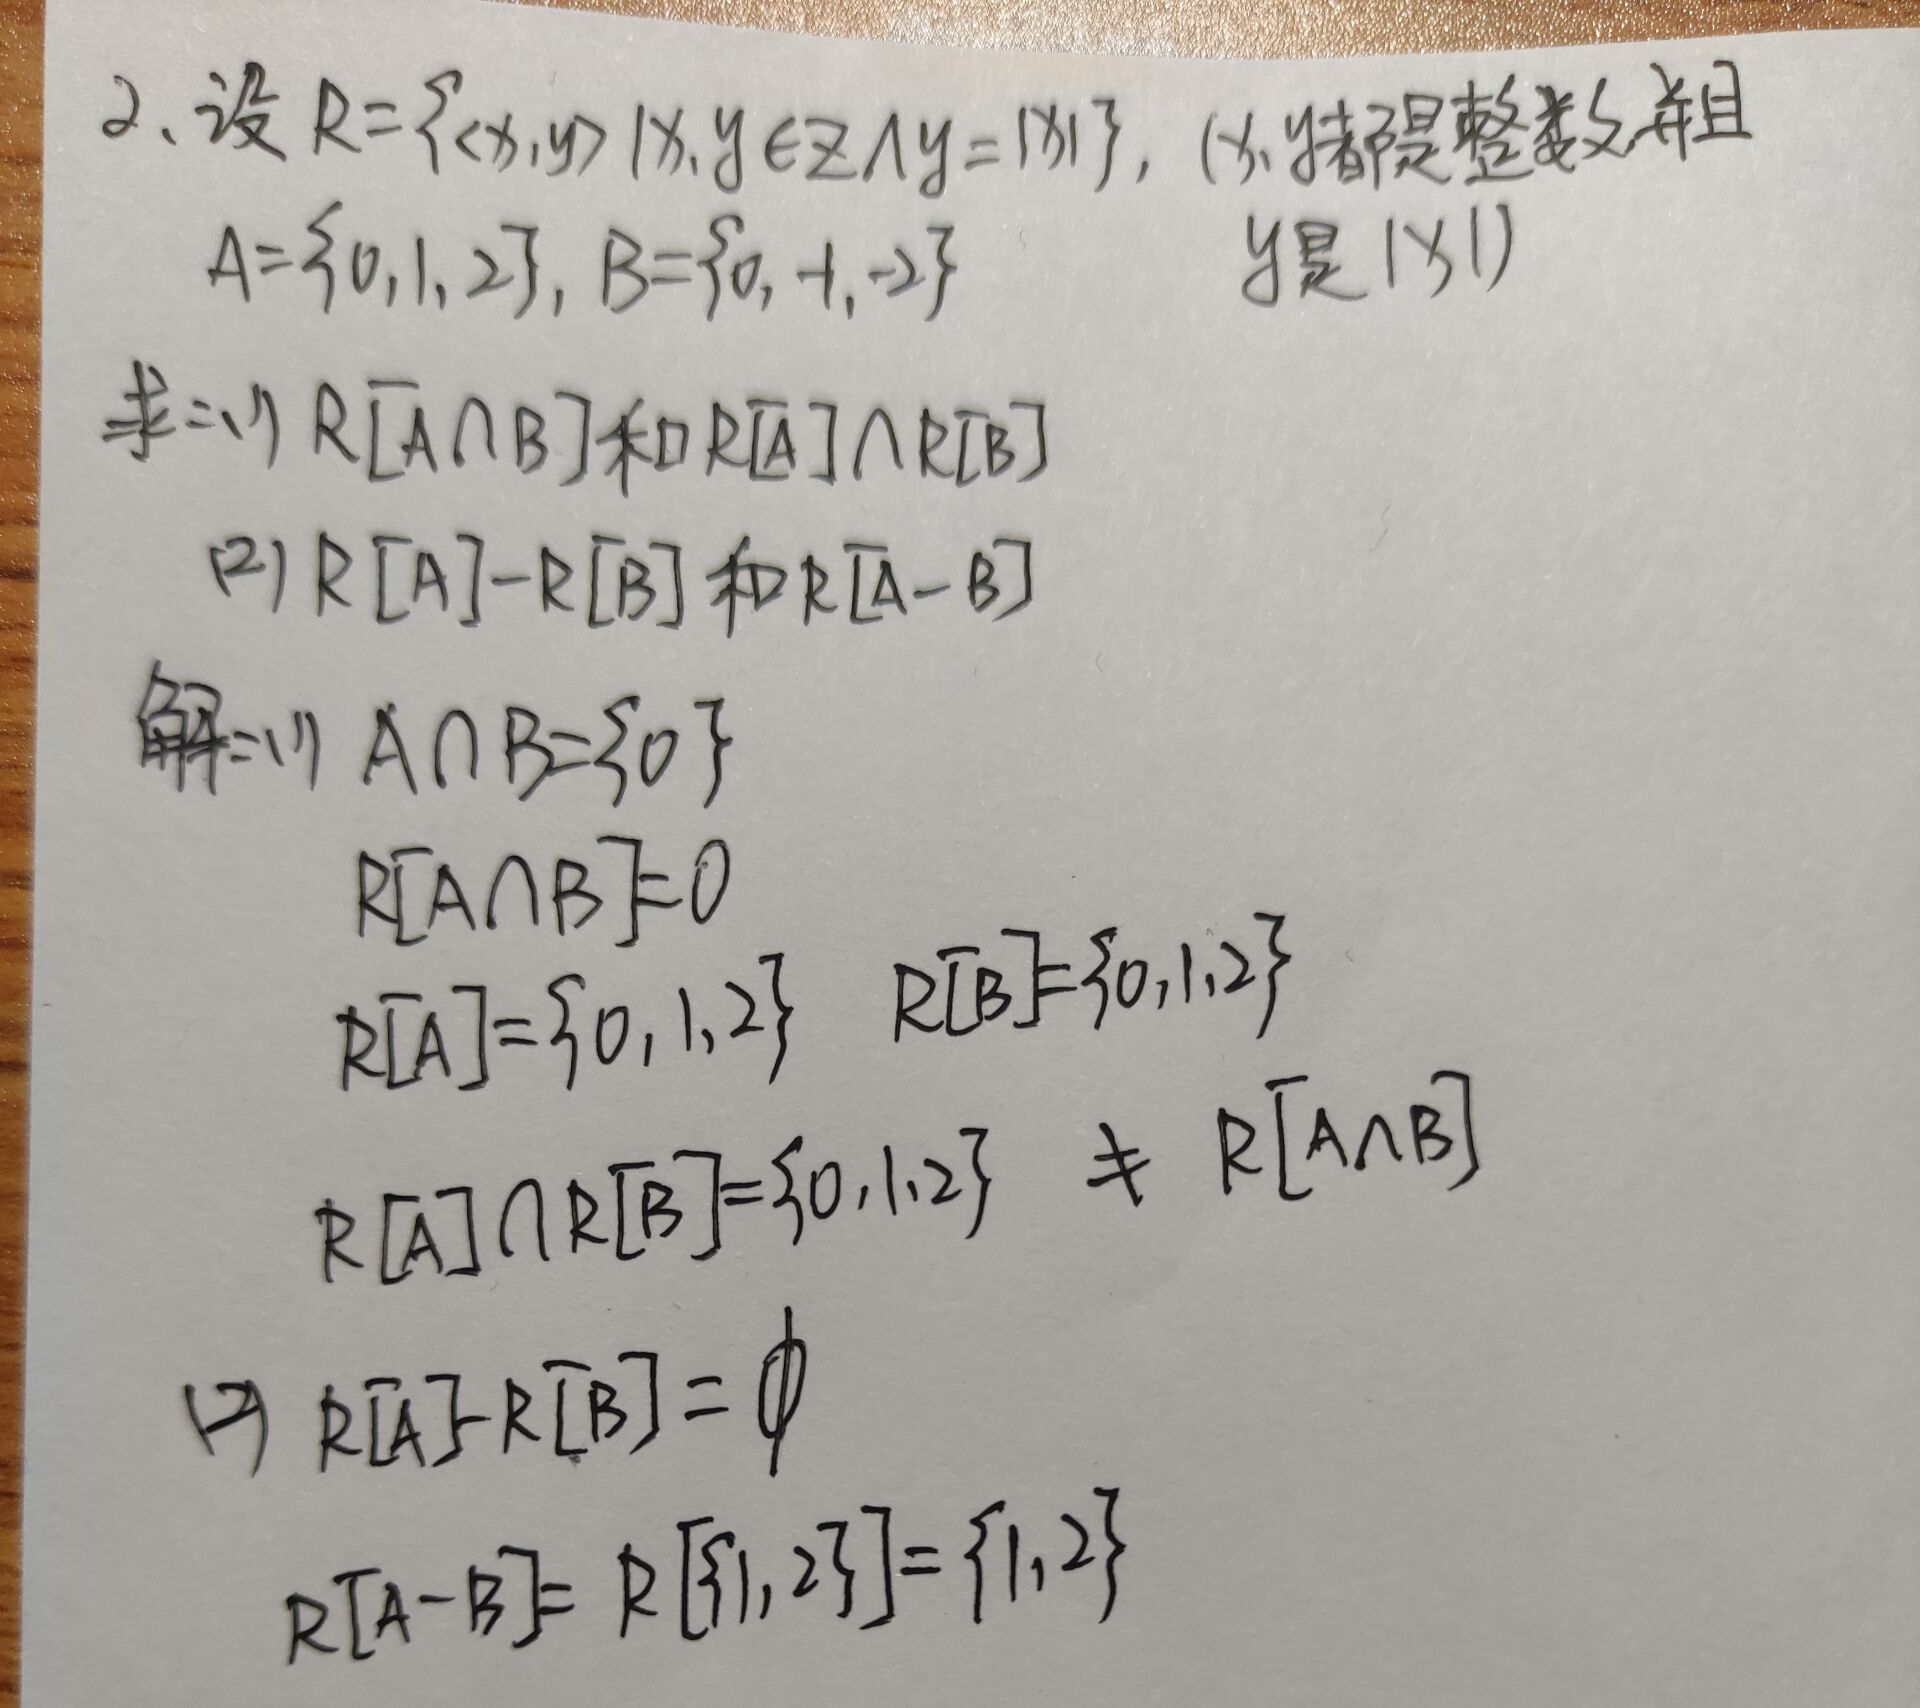 2、设 R={<x,y>|x,y∈Z∧y=|x|}, (x,y都是整数,并且
y是|x|)
A={0,1,2}, B={0,-1,-2}
求:(1) R[A∩B]和R[A]∩R[B]
(2) R[A]-R[B]和R[A-B]
解:(1) A∩B={0}
R[A∩B]=0
R[A]={0,1,2} R[B]={0,1,2}
R[A]∩R[B]={0,1,2} ≠ R[A∩B]
(2) R[A]-R[B]=∅
R[A-B]=R[{1,2}]={1,2}